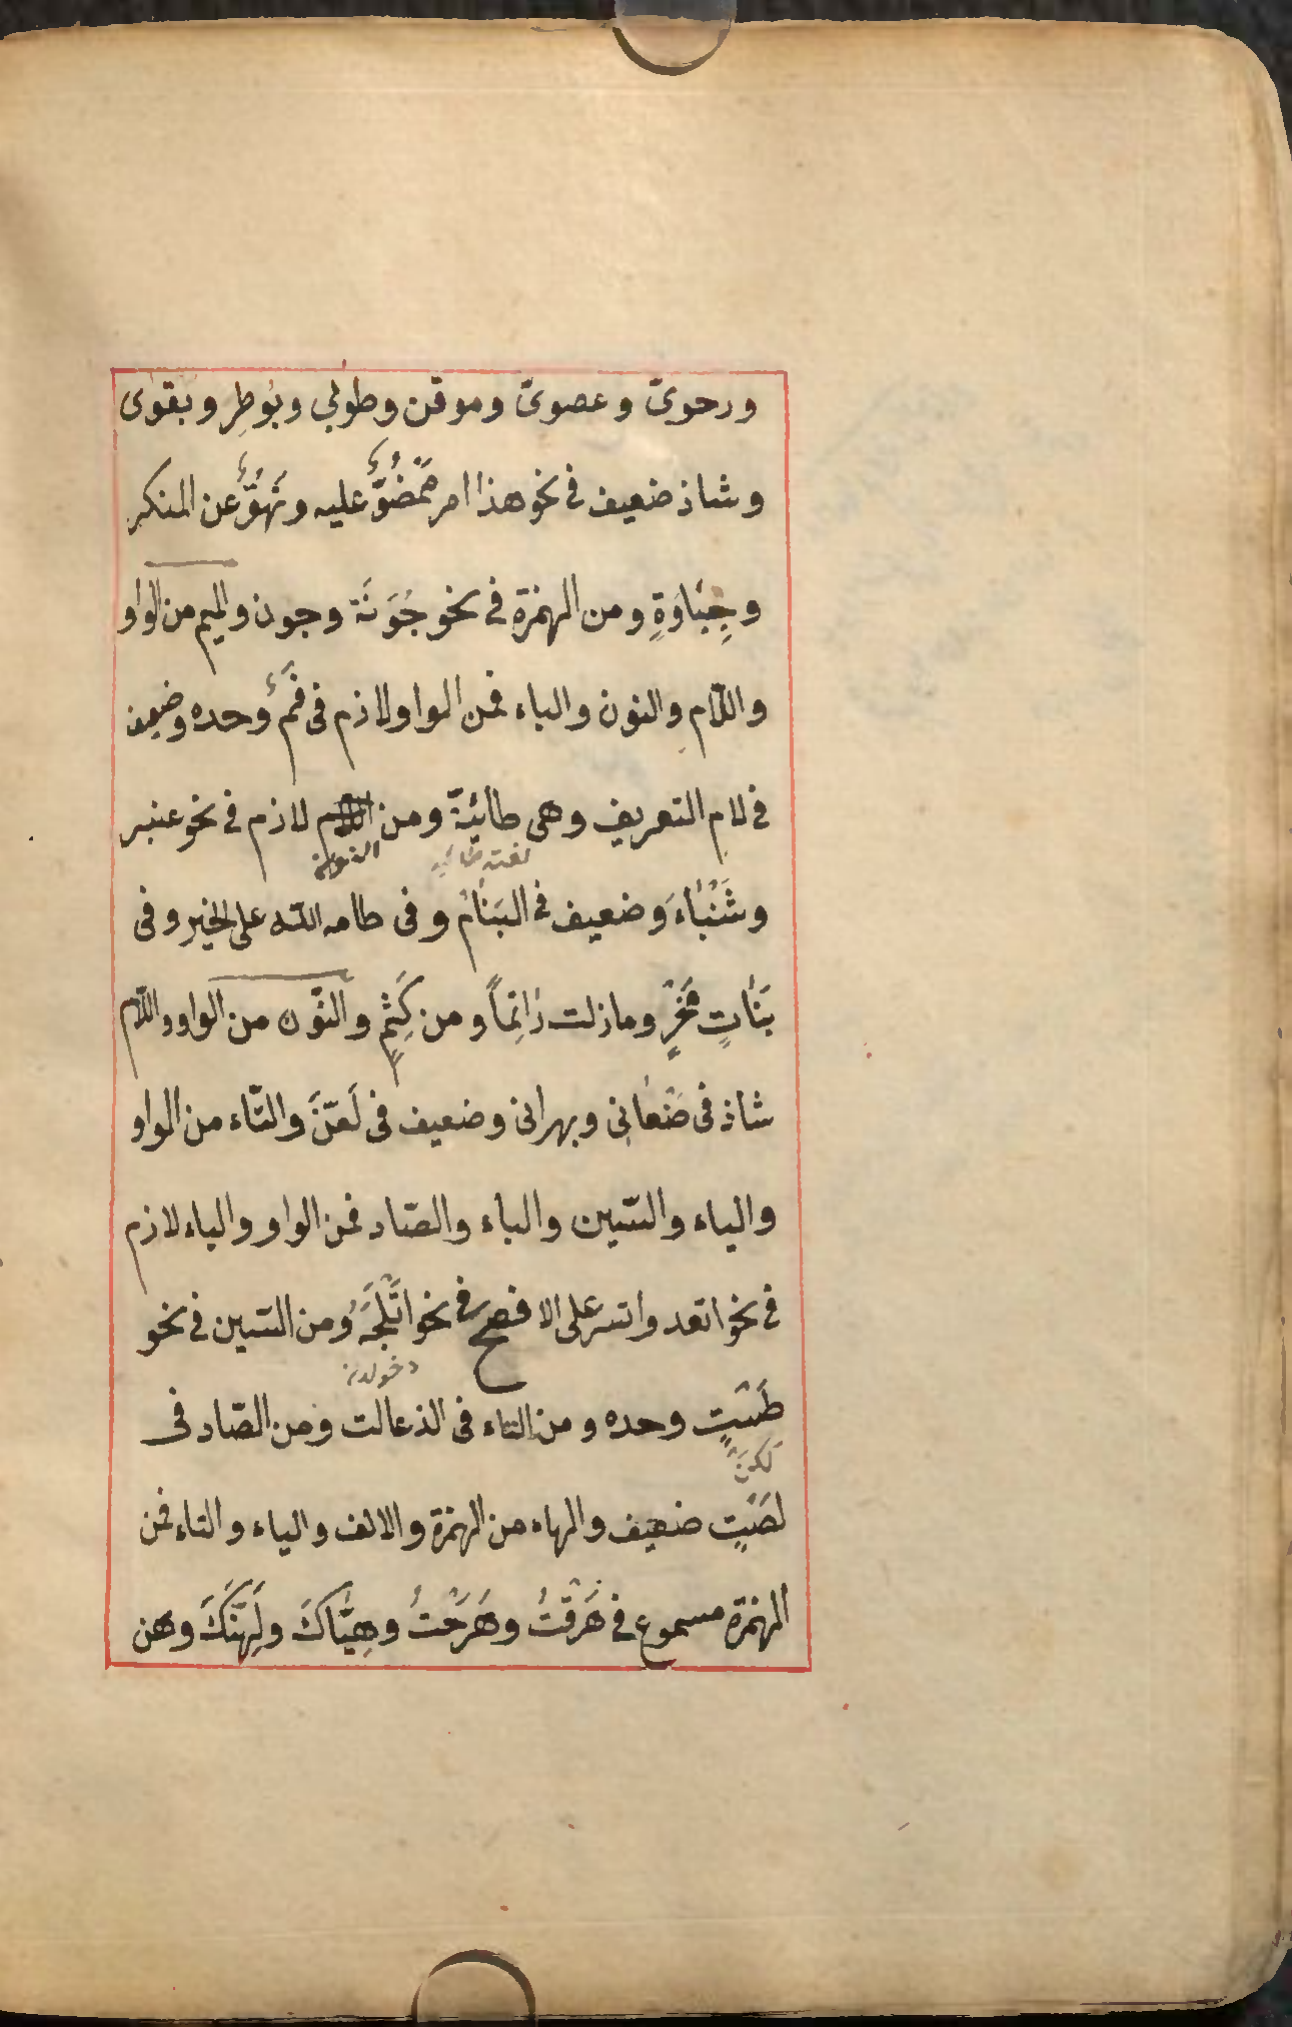 ورحوىّ وعصوىّ وموقن وطوبى وبُوطِر وبَقوٰى
وشاذ ضعيف فى نحو هذا امر مَمْضُوٌّ عليه ونَهُوٌّ عن المنكر
وجِبَاوَةٍ ومن الهمزةِ فى نحو جُوَنَة وجون والميم من الواو
واللّام والنون والباء فمن الواو لازم فى فَمٌ وحده وضعيف
فى لام التعريف وهى طائيّة ومن لازم فى نحو عنبر
النون لغت طائيه
وشَنْبَاءَ وضعيف فى البَنَامُ وفى طامه اللّه على الخير وفى
بَنَاتِ مَخْرٍ وما زلت رَاتِماً ومن كَثِمٍ والنّون من الواو واللّام
شاذ فى صَنْعَانِى وبهرانى وضعيف فى لَعَنَّ والتّاء من الواو
والياء والسّين والباء والصّاد فمن الواو والياء لازم
فى نحو اتعد واتسر على الافصح فى نحو اتْلَجَهُ ومن السّين فى نحو
طَسْتٍ وحده ومن الباء فى الذعالت ومن الصّاد فى
لصْتٍ ضعيف والهاء من الهمزة والالف والياء والتاء فمن
الهمزة مسموع فى هَرَقْتُ وهَرَحْتُ وهِيَّاكَ ولَهِنَّكَ وهن